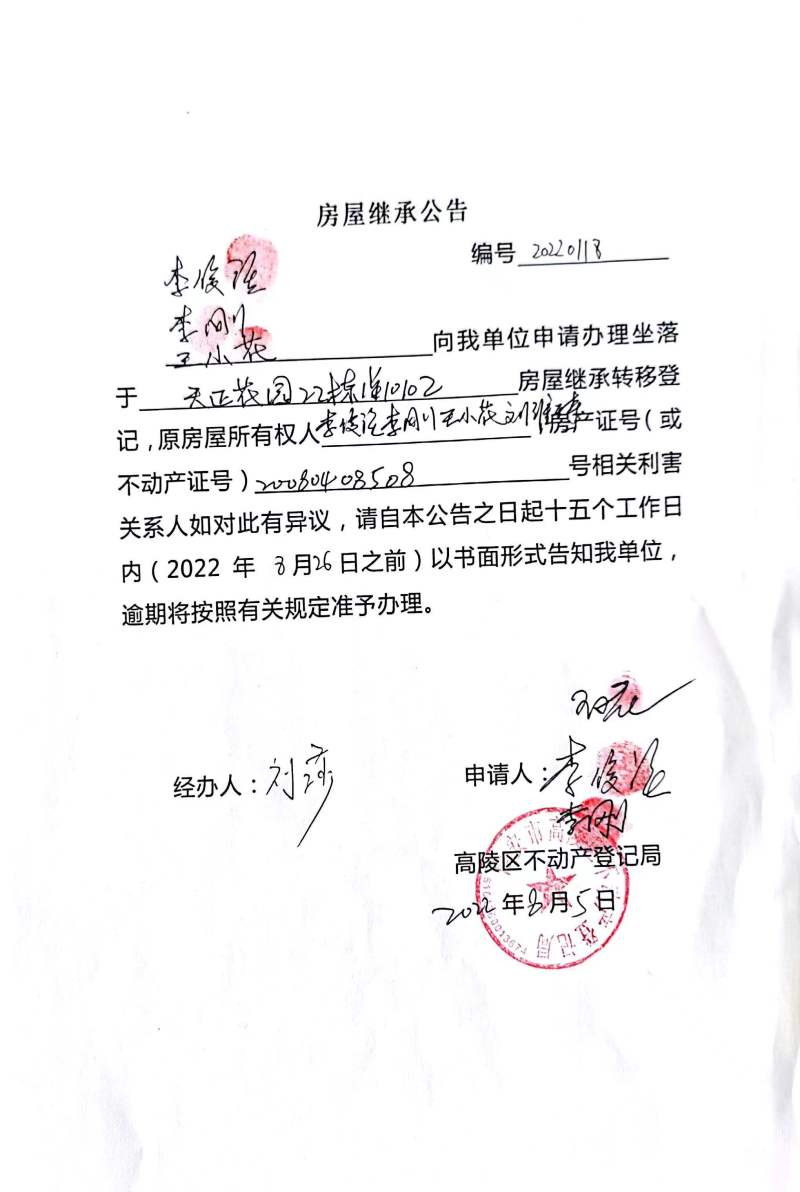 房屋继承公告
编号 20220118
李俊
李刚
王小花 向我单位申请办理坐落
于 天正花园22栋1单10102 房屋继承转移登
记，原房屋所有权人 李俊 李刚 王小花 刘 房产证号（或
不动产证号）20080408508 号相关利害
关系人如对此有异议，请自本公告之日起十五个工作日
内（2022 年 8月26日之前）以书面形式告知我单位，
逾期将按照有关规定准予办理。
经办人：刘
申请人：李俊
李刚
高陵区不动产登记局
2022年8月5日